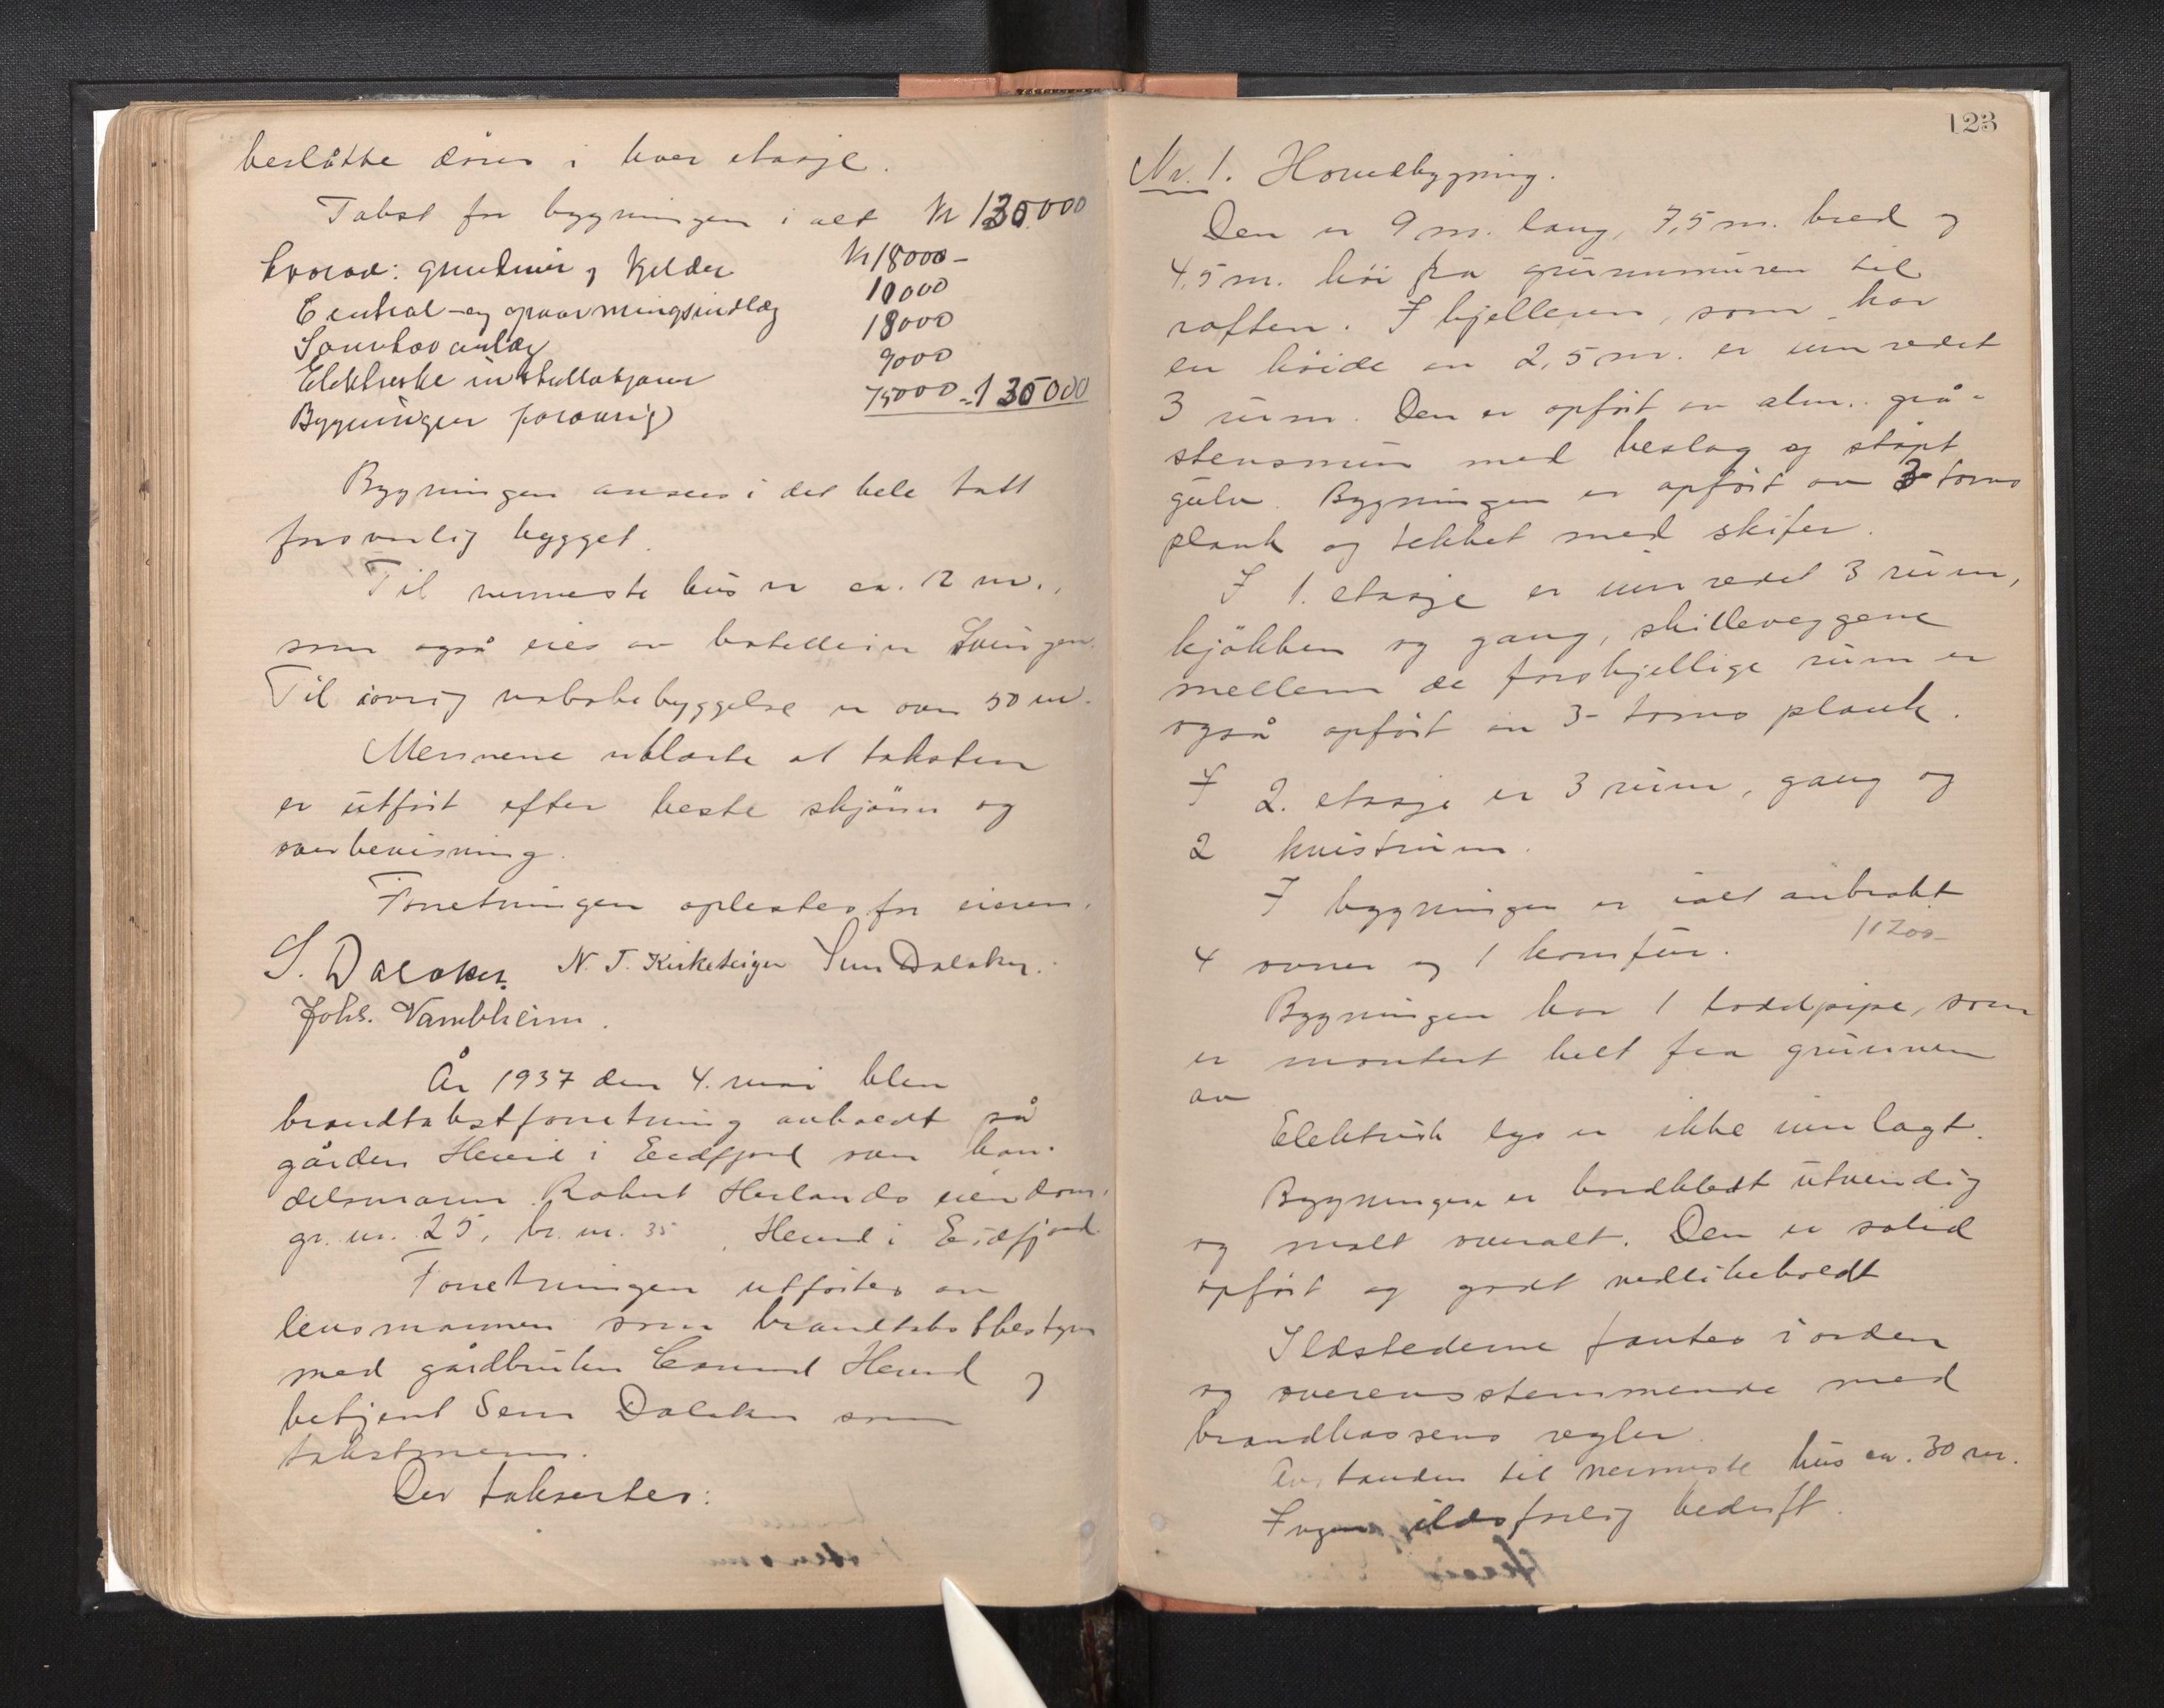 beslåtte dörer i hver etasje.
Takst for bygningen i alt Kr 130000
hvorav: grundmur og kjelder Kr 18000-
Central- og opvarmingsindlæg 10000
Sanitæranlæg 18000
Elektriske installasjoner 9000
Bygningen forøvrig 75000 = 130000
Bygningen ansees i det hele tatt
forsvarlig bygget.
Til nærmeste hus er ca. 12 m.,
som også eies av hotelleier
Til övrig nabobebyggelse er over 50 m.
Mennene erklærte at taksten
er utfört efter beste skjönn og
overbevisning.
Forretningen oplestes for eieren.
S. Dalaker. N. T. Kirketeigen Sem Dalaker.
Johs. Vambheim.
År 1937 den 4. mai blev
brandtakstforretning avholdt på
gården Hereid i Eidfjord over han-
delsmann Robert Herlands eiendom,
gr. nr. 25, br. nr. 35, Hereid i Eidfjord.
Forretningen utförtes av
lensmannen som brandtakstbestyrer
med gårdbruker Hereid og
betjent Sem Dalaker som
takstmenn.
Der taksertes:
123
Nr. 1. Hovedbygning.
Den er 9 m. lang, 7,5 m. bred og
4,5 m. höi fra grunnmuren til
raften. I kjelleren, som har
en höide av 2,5 m. er innredet
3 rum. Den er opfört av alm. grå-
stensmur med beslag og stöpt
gulv. Bygningen er opfört av 3 toms
plank og tekket med skifer.
I 1. etasje er innredet 3 rum,
kjökken og gang, skilleveggene
mellem de forskjellige rum er
også opfört av 3- toms plank.
I 2. etasje er 3 rum, gang og
2 kvistrum.
I bygningen er ialt anbrakt
11200-
4 ovner og 1 komfur.
Bygningen har 1 pipe, som
er montert helt fra grunnen
av
Elektrisk lys er ikke innlagt.
Bygningen er bordkledt utvendig
og malt overalt. Den er solid
opfört og godt vedlikeholdt
Ildstederne fantes i orden
og overensstemmende med
brandkassens regler.
Avstanden til nærmeste hus ca. 30 m.
Ingen ildsfarlig bedrift.